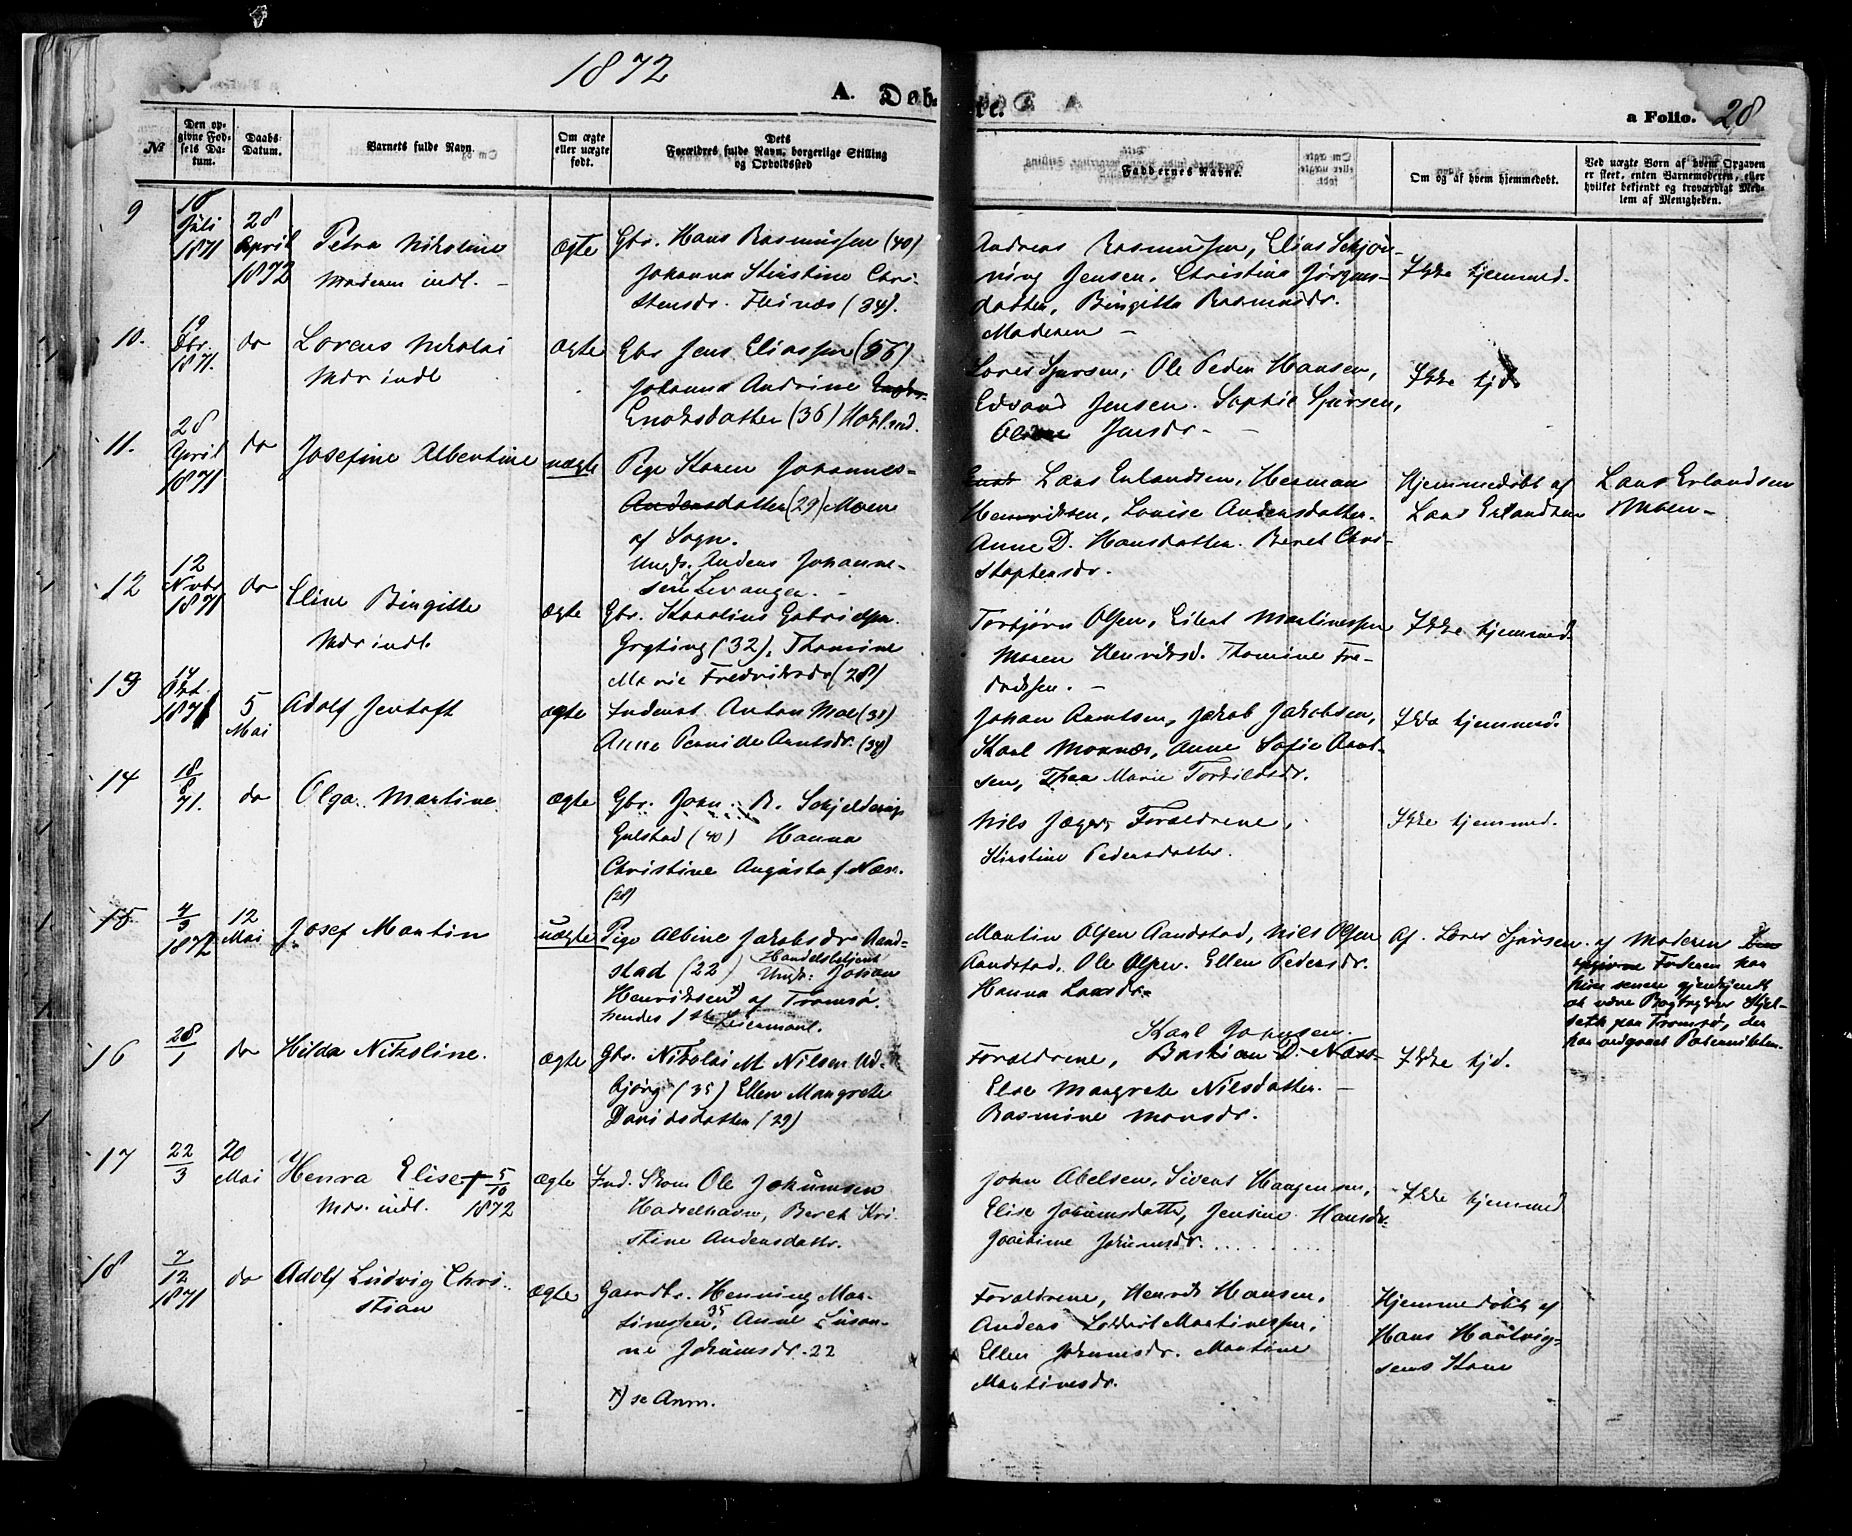 1872
A. Døb-
te.
a Folio. 28
№
Den op-
givne Fød-
sels Da-
tum.
Daabs-
Datum.
Barnets fulde Navn.
Om ægte
eller uægte
født.
Dets
Forældres fulde Navn, borgerlige Stilling
og Opholdssted
Faddernes Navne.
Om og af hvem hjemmedøbt.
Ved uægte Børn af hvem Opgaven
er skeet, enten Barnemoderen, eller
hvilket bekjendt og troværdigt Med-
lem af Menigheden.
9
18
Juli
1871
28
April
1872
Petra Nikoline
Moderen indl. -
ægte
Gbr. Hans Rasmussen (40)
Johanna Kirstine Chri-
stensdr. (34).
Andreas Rasmussen, Elias Schjön-
ning Jensen, Christine Jörgens-
datter, Birgitte Rasmusdr.
Moderen -
Ikke hjemmed.
10.
19
1871.
do
Lorens Nikolai
Mdr indl
ægte
Gbr Jens Eliassen (36).
Johanna Andrine
Enoksdatter (36) Hokland.
Lorents Sjursen, Ole Peder Hansen,
Edvard Jensen. Sophie Sjursen,
Oline Jensdr. -
Ikke hjd.
11.
28
April
1871
do
Josefine Albertine
uægte
Pige Karen Johannes-
Andersdatter (29) Moen
af Sogn.
Ungk. Anders Johanne-
sen Levanger. -
Lars Erlandsen, Herman
Henriksen, Lovise Andersdatter.
Anne D. Hansdatter. Beret Chri-
stophersdr.
Hjemmedøbt af
Lars Erlandsen
Lars Erlandsen
Moen -
12
12
Novbr
1871
do
Eline Birgitte
Mdr indl.
ægte
Gbr. Karolius Gabrielsen
(32), Thomine
Marie Fredriksdr (28)
Torbjörn Olsen, Eilert Martinessen
Maren Henriksd. Thomine Fre-
driksen. -
Ikke hjemmed.
13
14
Okt.
1871
5
Mai
Adolf Jentoft
ægte
Inderst Anton Moe (38)
Anne Pernille Arntsdr. (34)
Johan Arntsen, Jakob Jakobsen,
Karl Moxnæs, Anne Sofie Arnt-
sen, Thea Marie Torkildsdr.
Ikke hjemmed.
14
18
8
71.
do
Olga Martine
ægte
Gbr. John. B. Schjelderup
Gulstad (40) Hanna
Christine Augusta f Næss.
(28)
Nils Jæger, Forældrene,
Kirstine Pedersdatter.
Ikke hjemmed.
15
4
3
1872
12
Mai
Josef Martin
uægte
Pige Albine Jakobsdr Rand-
stad (22) Handelsbetjent
Ungk: Johan
Henriksen x) af Tromsø.
hendes 1ste Leiermaal.
Martin Olsen Randstad, Nils Olsen
Randstad, Ole Olsen. Ellen Pedersdr.
Hanna Larsdr.
Af. Lorents Sjursen.
af Moderen Den
opgivne Faderen har
hun senere gjenkjendt
at være Bogtrykker Kjel-
seth paa Tromsø, der
har vedgaaet Paterniteten.
16
28
1
do
Hilda Nikoline.
ægte
Gbr. Nikolai M. Nilsen Ud-
björg (35) Ellen Margrete
Davidsdatter (29)
Karl Johnsen.
Forældrene, Bastian D. Næss-
Else Margrete Nilsdatter. -
Rasmine Monsdr.
Ikke hjd.
17
22
3
20
Mai
Henra Elise † 5
10
Mdr. indl. 1872
ægte
Ind. Skom Ole Johnsen
Hasselhavn, Beret Kri-
stine Andersdatter.
John Abelsen, Sivert Haagensen,
Elise Johnsdatter, Jensine Hansdr-
Joakime Johnsdr.
Ikke hjemmed
18
7
12
1871
do
Adolf Ludvig Chri-
stian
ægte
Gaardbr. Henning Mar-
tinessen 35, Anne Susan-
ne Johnsdr. 22
x) se Anm.
Forældrene, Henrik Hansen,
Anders Martinessen,
Ellen Johnsdr. Martine
Martinesdr.
Hjemmedøbt af
Hans Hartvig-
sens Kone